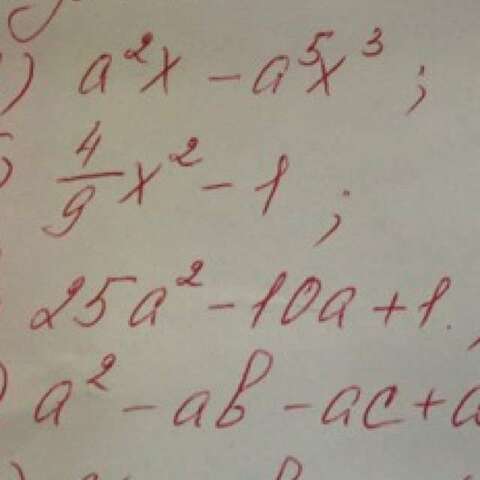 ) a²x - a⁵x³ ;
4/9 x² - 1 ;
25a² - 10a + 1.
) a² - ab - ac +